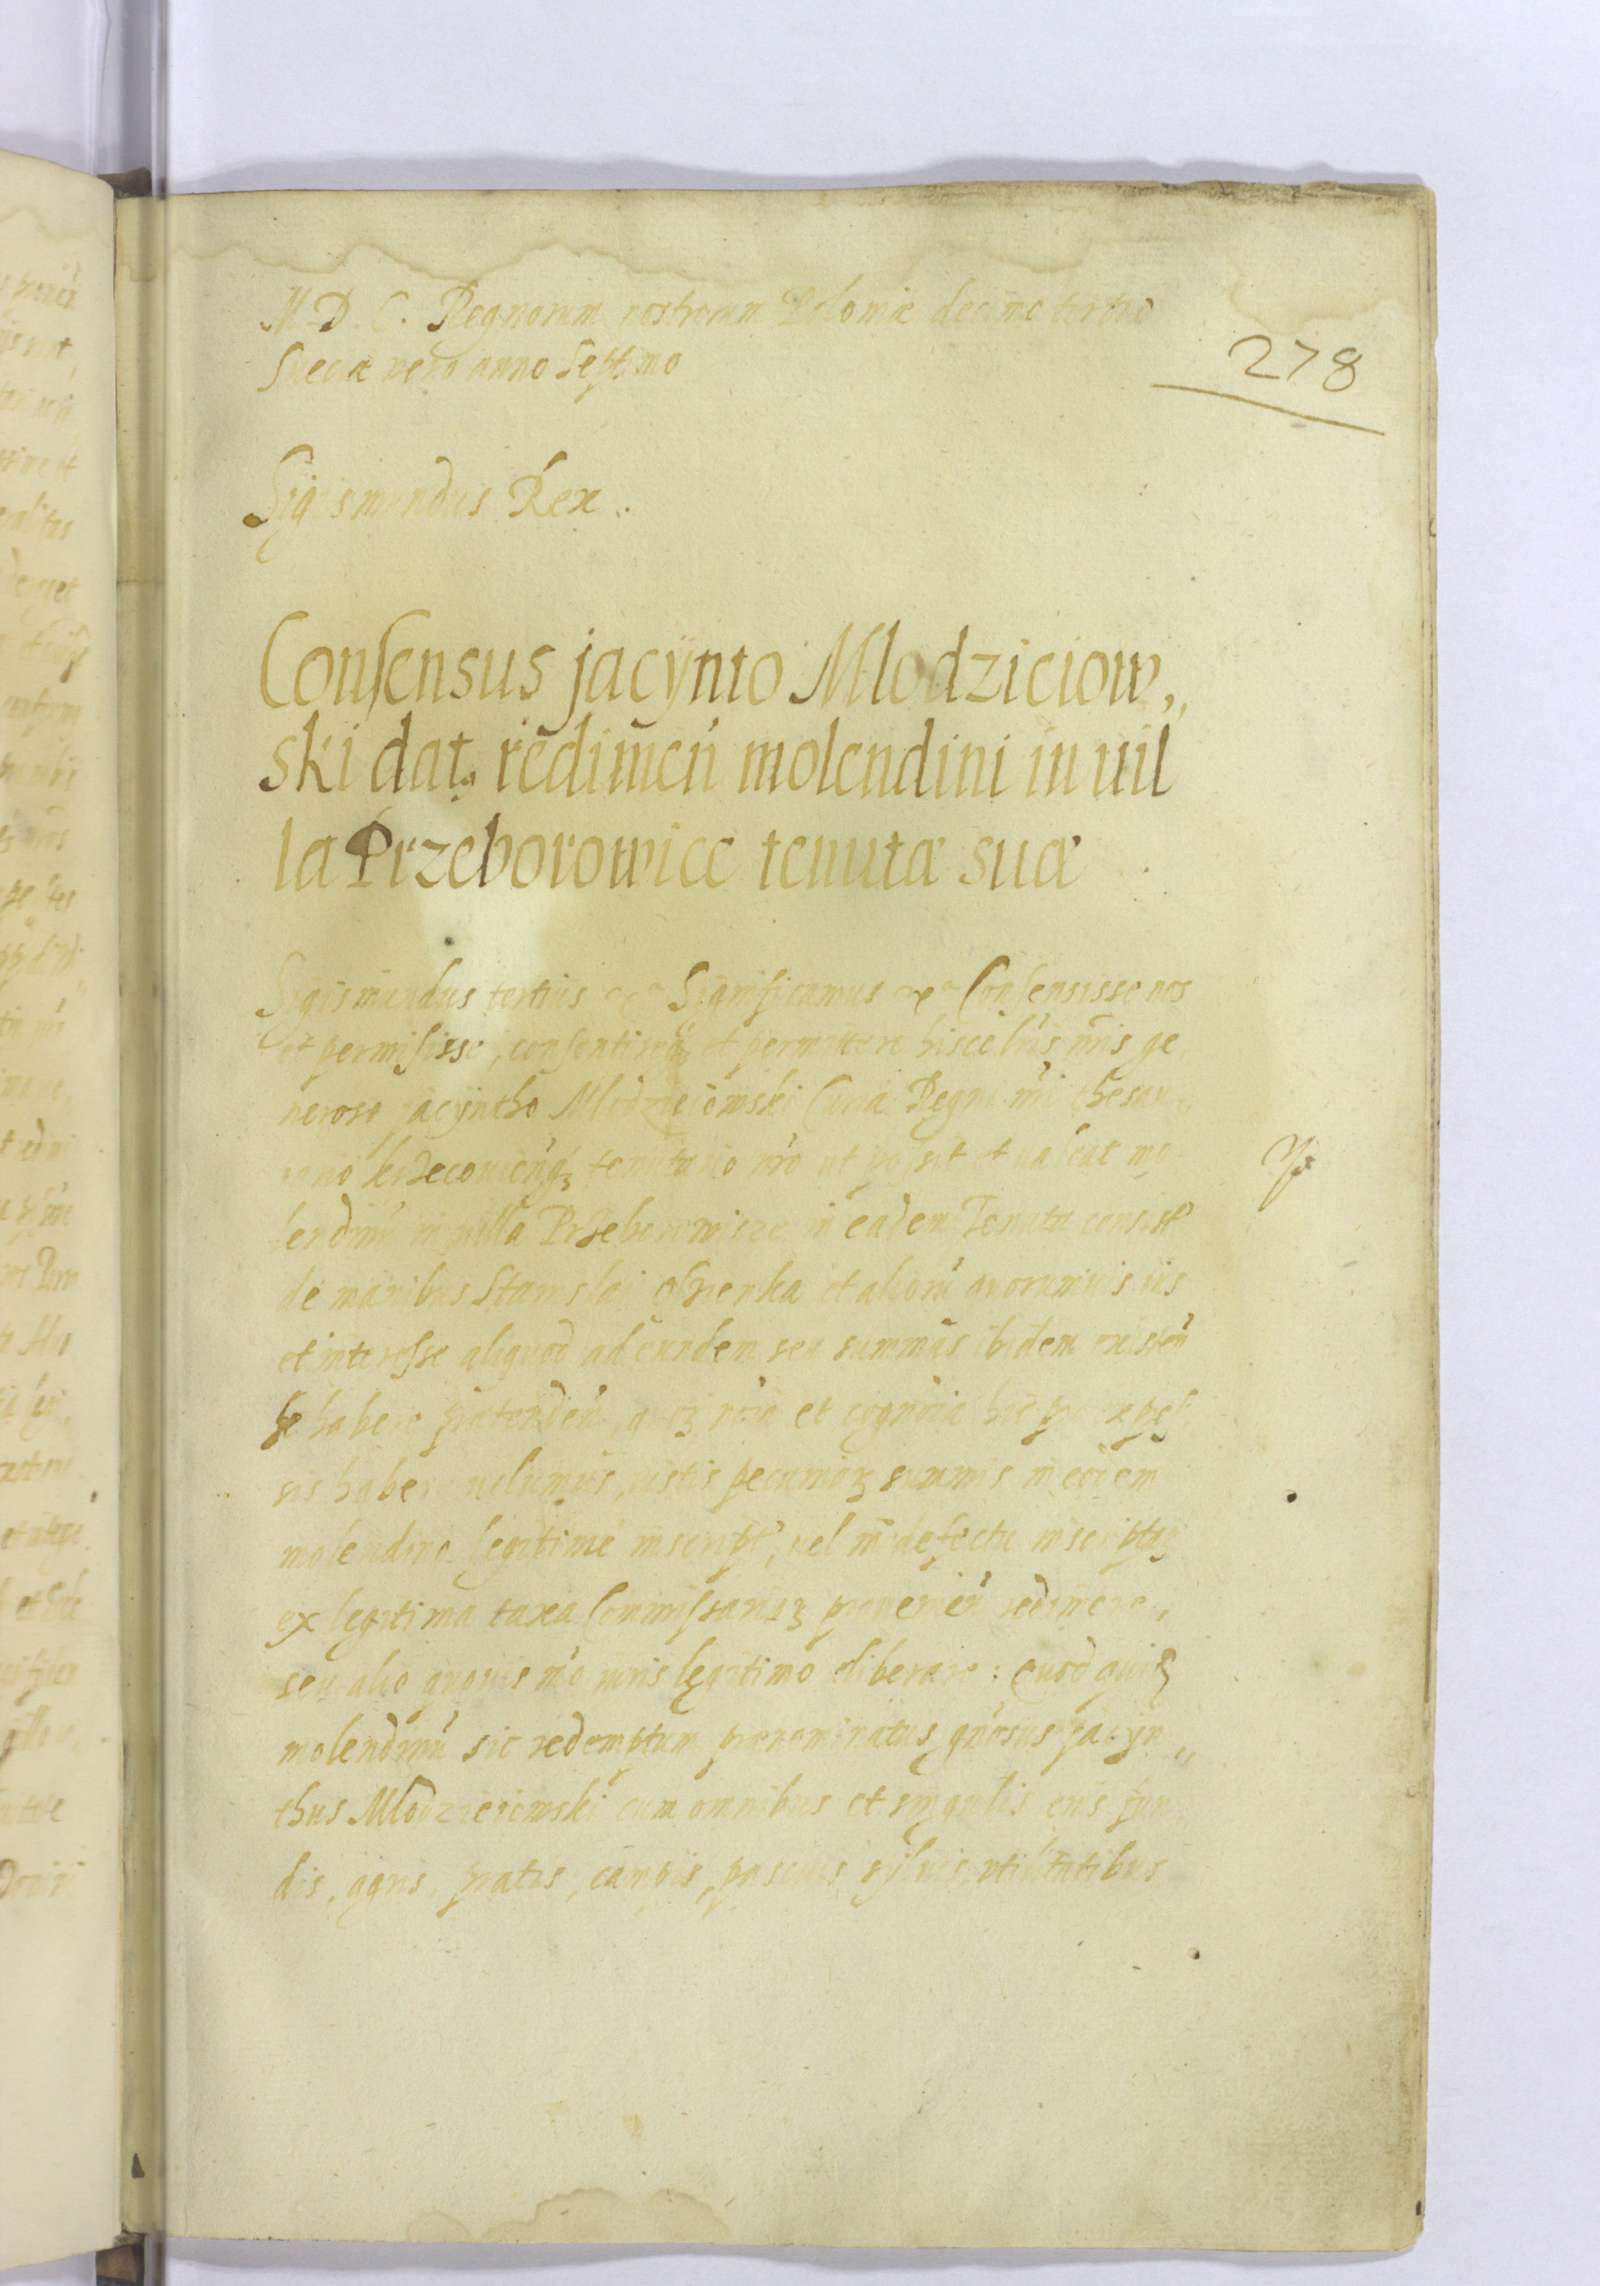 M. D. C. Regnorum nostrorum Poloniæ decimo tertio
Sueciæ vero anno Septimo
278
Sigismundus Rex.
Consensus jacÿnto Mlodzieiow„
ski dat. redimen molendini in uil
la Przeborowice tenutæ suæ
Sigismundus tertius Significamus Consensisse nos
et permisisse, consentireq et permittere hisce lris nris ge
neroso jacÿntho Mlodzieiowski Curiæ Regni nri thesau„
tenutario nro ut possit et ualeat mo
lendinū in uilla Przeborowicze in eadem Tenuta consist
de manibus Stanislai et aliorū quorumuis ius
et interesse aliquod ad eundem seu summas ibidem existen
se habere prætenden, et cognoia hic pro
sis habere uolumus, iustis pecuniarꝫ summis in eodem
molendino legitime inscript, uel in defectu inscriptarꝫ
ex legitima taxa Commissariorꝫ prouenien redimere,
seu alio quouis mo iuris legitimo liberare: Quod quidē
molendinū sic redemptum prænominatus gnosus jacÿn„
thus Mlodzieiowski cum omnibus et singulis eius fun
dis, agris, pratis, campis, pascuis sÿluis, vtilitatibus